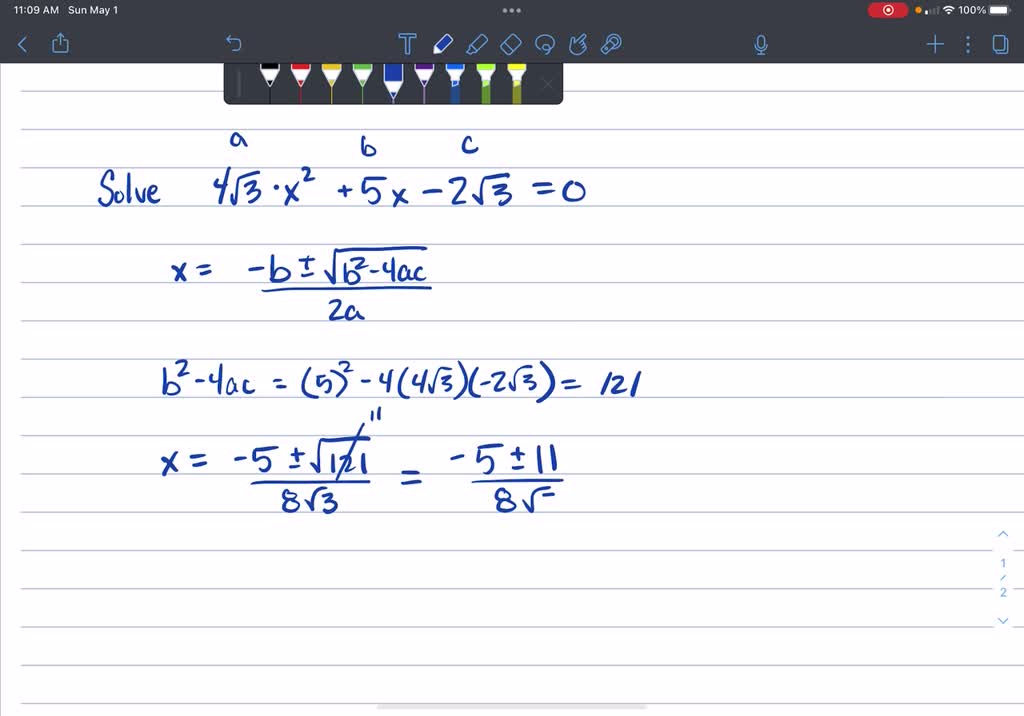 11:09 AM Sun May 1
100%
a b c
Solve 4√3·x² + 5x − 2√3 = 0
x = −b ± √b²−4ac
2a
b² − 4ac = (5)² − 4(4√3)(−2√3) = 121
11
x = −5 ± √121 = −5 ± 11
8√3 8√
1
2